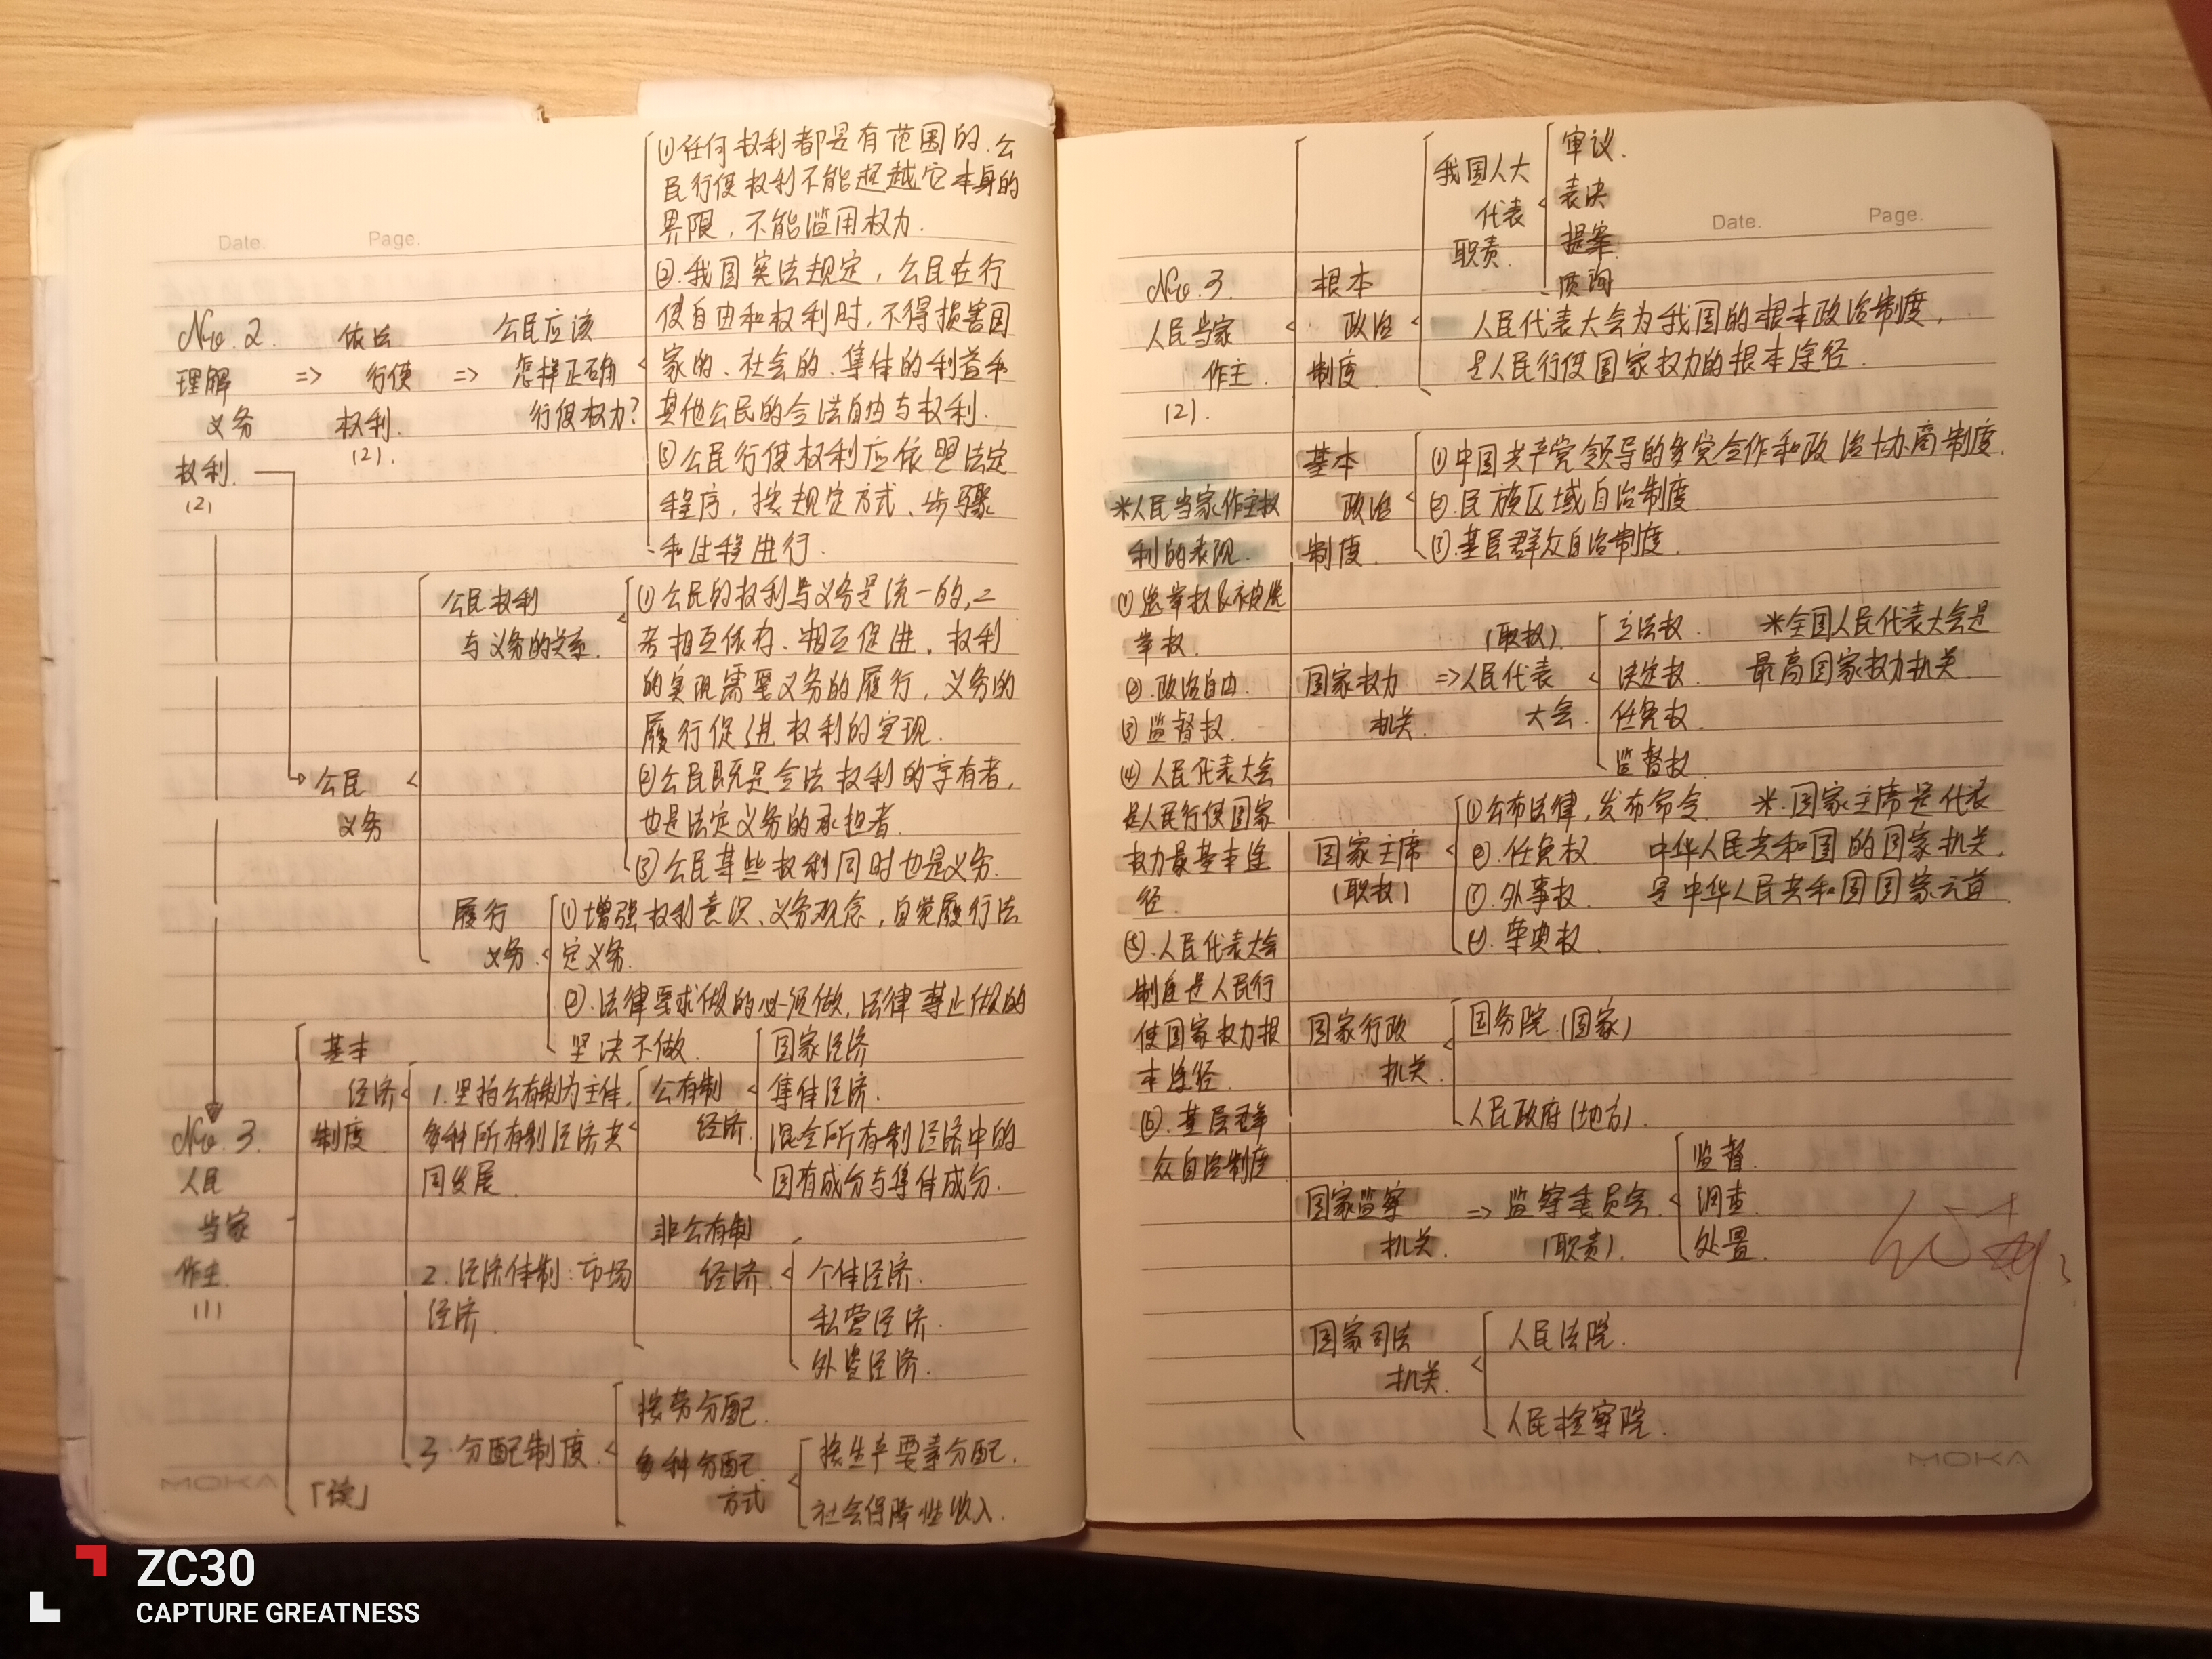 Date.
Page.
No.2.
理解
义务
权利.
(2)
=> 依法
行使
权利.
(2).
=> 公民应该
怎样正确
行使权力?
①任何权利都是有范围的.公
民行使权利不能超越它本身的
界限,不能滥用权力.
②.我国宪法规定,公民在行
使自由和权利时,不得损害国
家的、社会的、集体的利益和
其他公民的合法自由与权利.
③公民行使权利应依照法定
程序,按规定方式、步骤
和过程进行.
公民
义务
公民权利
与义务的关系.
①公民的权利与义务是统一的,二
者相互依存、相互促进.权利
的实现需要义务的履行,义务的
履行促进权利的实现.
②公民既是合法权利的享有者,
也是法定义务的承担者.
③公民某些权利同时也是义务.
履行
义务.
①增强权利意识、义务观念,自觉履行法
定义务.
②.法律要求做的必须做,法律禁止做的
坚决不做.
No.3.
人民
当家
作主.
(1)
基本
经济
制度
1.坚持公有制为主体,
多种所有制经济共
同发展.
公有制
经济.
国家经济
集体经济.
混合所有制经济中的
国有成分与集体成分.
非公有制
经济.
个体经济.
私营经济.
外资经济.
2.经济体制:市场
经济.
3.分配制度
按劳分配.
多种分配
方式
按生产要素分配.
社会保障性收入.
「续」
MOKA
Date.
Page.
No.3.
人民当家
作主.
(2).
根本
政治
制度.
我国人大
代表
职责.
审议.
表决
提案
质询
人民代表大会为我国的根本政治制度,
是人民行使国家权力的根本途径.
基本
政治
制度.
①中国共产党领导的多党合作和政治协商制度.
②.民族区域自治制度.
③.基层群众自治制度.
*人民当家作主权
利的表现.
①选举权及被选
举权.
②.政治自由.
③监督权.
④人民代表大会
是人民行使国家
权力最基本途
径.
⑤.人民代表大会
制度是人民行
使国家权力根
本途径.
⑥.基层群
众自治制度
国家权力
机关.
(职权).
=>人民代表
大会.
立法权.
决定权.
任免权.
监督权.
*全国人民代表大会是
最高国家权力机关.
国家主席
(职权)
①公布法律,发布命令.
②.任免权.
③.外事权.
④.荣典权.
*.国家主席是代表
中华人民共和国的国家机关,
是中华人民共和国国家元首.
国家行政
机关.
国务院.(国家)
人民政府(地方).
国家监察
机关.
=>监察委员会
(职责).
监督.
调查.
处置.
国家司法
机关.
人民法院.
人民检察院.
MOKA
ZC30
CAPTURE GREATNESS